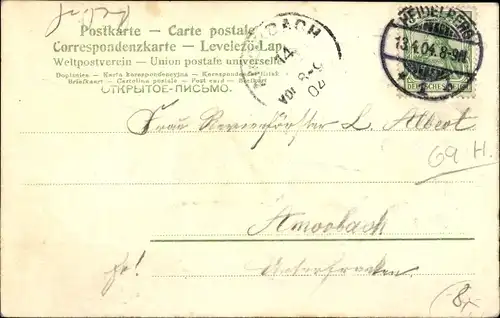 Postkarte - Carte postale
Correspondenzkarte - Levelező-Lap
Weltpostverein - Union postale universelle
Dopisnice - Karta korespondencyjna - Korespondenční lístek
Brefkort - Cartolina postale - Post card -
ОТКРЫТОЕ ПИСЬМО.
BACH
14
VOR 8-9
04
HEIDELBERG
13.4.04. 8-9N
* 1
DEUTSCHES REICH
Frau Revierförster L. Albert
69 H.
Amorbach
Unterfranken
fr!